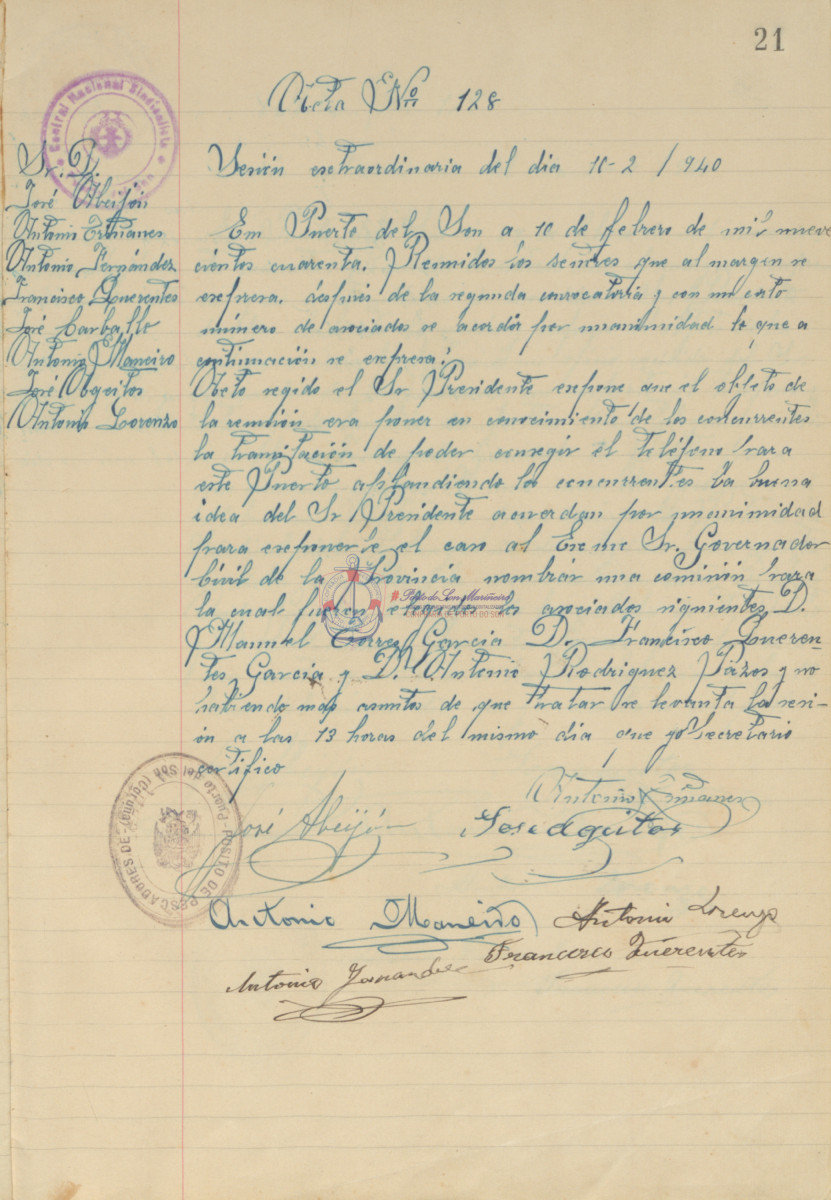 21
Acta Nº 128
Central Nacional Sindicalista
Sesión extraordinaria del dia 10-2/940
Sr. D.
José Abeijón
Antonio
Antonio Fernández
Francisco Querentes
José Carballo
Antonio Maneiro
José Ageitos
Antonio Lorenzo
En Puerto del Son a 10 de febrero de mil nueve
cientos cuarenta. Reunidos los señores que al margen se
expresa. después de la segunda convocatoria y con un corto
número de asociados se acordó por unanimidad lo que a
continuación se expresa:
Acto segido el Sr Presidente expone que el objeto de
la reunión era poner en conocimiento de los concurrentes
la tramitación de poder consegir el teléfono para
este Puerto aplaudiendo los concurrentes la buena
idea del Sr Presidente acuerdan por unanimidad
para exponerle el caso al Excmc Sr. Governador
Civil de la Provincia nombrar una comisión para
la cual fueron elegidos los asociados siguientes D.
Manuel Torres Garcia D. Francisco Queren-
tes Garcia y D. Antonio Rodriguez Pazos y no
habiendo mas asuntos de que tratar se levanta la sesi-
ón a las 13 horas del mismo dia que yo secretario
certifico
POSITO DE PESCADORES DE Puerto del Son (Coruña)
José Abeijón
Antonio
Jose Ageitos
Antonio Maneiro
Antonio Lorenzo
Francisco Querentes
Antonio